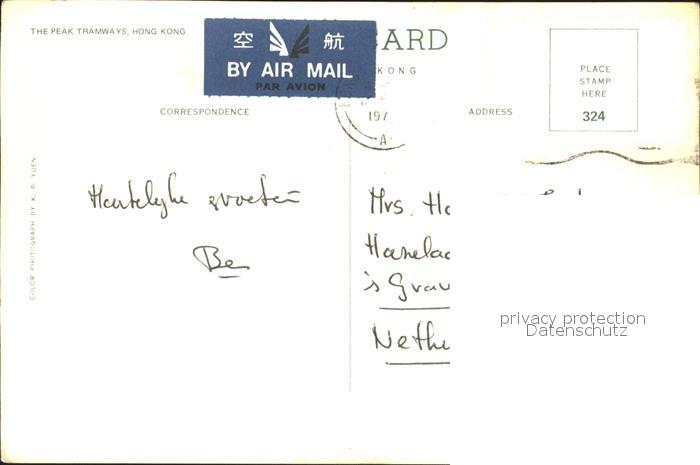 THE PEAK TRAMWAYS, HONG KONG.
空 航
BY AIR MAIL
PAR AVION
ARD
KONG
PLACE
STAMP
HERE
324
197
A
CORRESPONDENCE
ADDRESS
COLOR PHOTOGRAPH BY K. P. YUEN
Hartelyke groeten
Be
Mrs. Ha
's Grav
Nethe
privacy protection
Datenschutz